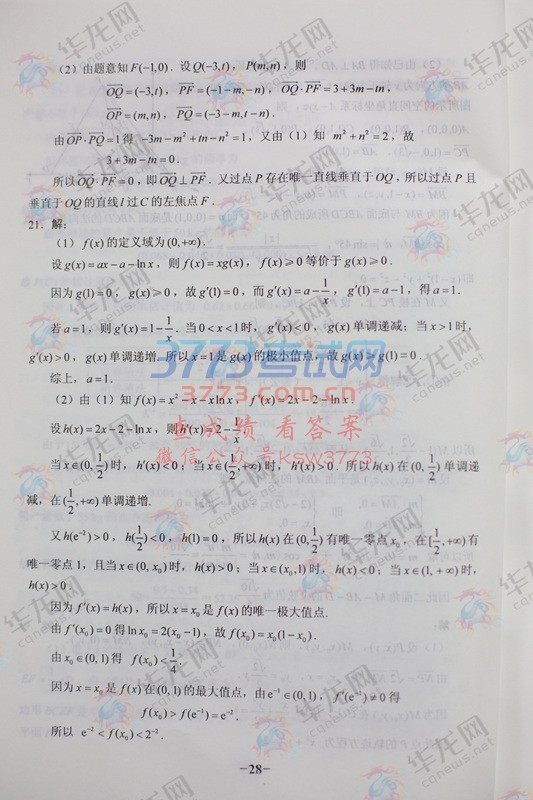 (2) 由题意知 F(−1,0). 设 Q(−3,t), P(m,n), 则
OQ=(−3,t), PF=(−1−m,−n), OQ·PF=3+3m−tn,
OP=(m,n), PQ=(−3−m,t−n).
由 OP·PQ=1 得 −3m−m²+tn−n²=1, 又由(1)知 m²+n²=2, 故
3+3m−tn=0.
所以 OQ·PF=0, 即 OQ⊥PF. 又过点 P 存在唯一直线垂直于 OQ, 所以过点 P 且
垂直于 OQ 的直线 l 过 C 的左焦点 F.
21. 解:
(1) f(x) 的定义域为 (0,+∞).
设 g(x)=ax−a−ln x, 则 f(x)=xg(x), f(x)≥0 等价于 g(x)≥0.
因为 g(1)=0, g(x)≥0, 故 g′(1)=0, 而 g′(x)=a−1/x, g′(1)=a−1, 得 a=1.
若 a=1, 则 g′(x)=1−1/x. 当 0<x<1 时, g′(x)<0, g(x) 单调递减; 当 x>1 时,
g′(x)>0, g(x) 单调递增. 所以 x=1 是 g(x) 的极小值点, 故 g(x)≥g(1)=0.
综上, a=1.
(2) 由(1)知 f(x)=x²−x−xln x, f′(x)=2x−2−ln x.
设 h(x)=2x−2−ln x, 则 h′(x)=2−1/x.
当 x∈(0,1/2) 时, h′(x)<0; 当 x∈(1/2,+∞) 时, h′(x)>0. 所以 h(x) 在 (0,1/2) 单调递
减, 在 (1/2,+∞) 单调递增.
又 h(e⁻²)>0, h(1/2)<0, h(1)=0, 所以 h(x) 在 (0,1/2) 有唯一零点 x₀, 在 [1/2,+∞) 有
唯一零点 1, 且当 x∈(0,x₀) 时, h(x)>0; 当 x∈(x₀,1) 时, h(x)<0; 当 x∈(1,+∞) 时,
h(x)>0.
因为 f′(x)=h(x), 所以 x=x₀ 是 f(x) 的唯一极大值点.
由 f′(x₀)=0 得 ln x₀=2(x₀−1), 故 f(x₀)=x₀(1−x₀).
由 x₀∈(0,1) 得 f(x₀)<1/4.
因为 x=x₀ 是 f(x) 在 (0,1) 的最大值点, 由 e⁻¹∈(0,1), f′(e⁻¹)≠0 得
f(x₀)>f(e⁻¹)=e⁻².
所以 e⁻²<f(x₀)<2⁻².
−28−
3773考试网
3773.com.cn
查成绩 看答案
微信公众号ksw3773
华龙网
cqnews.net